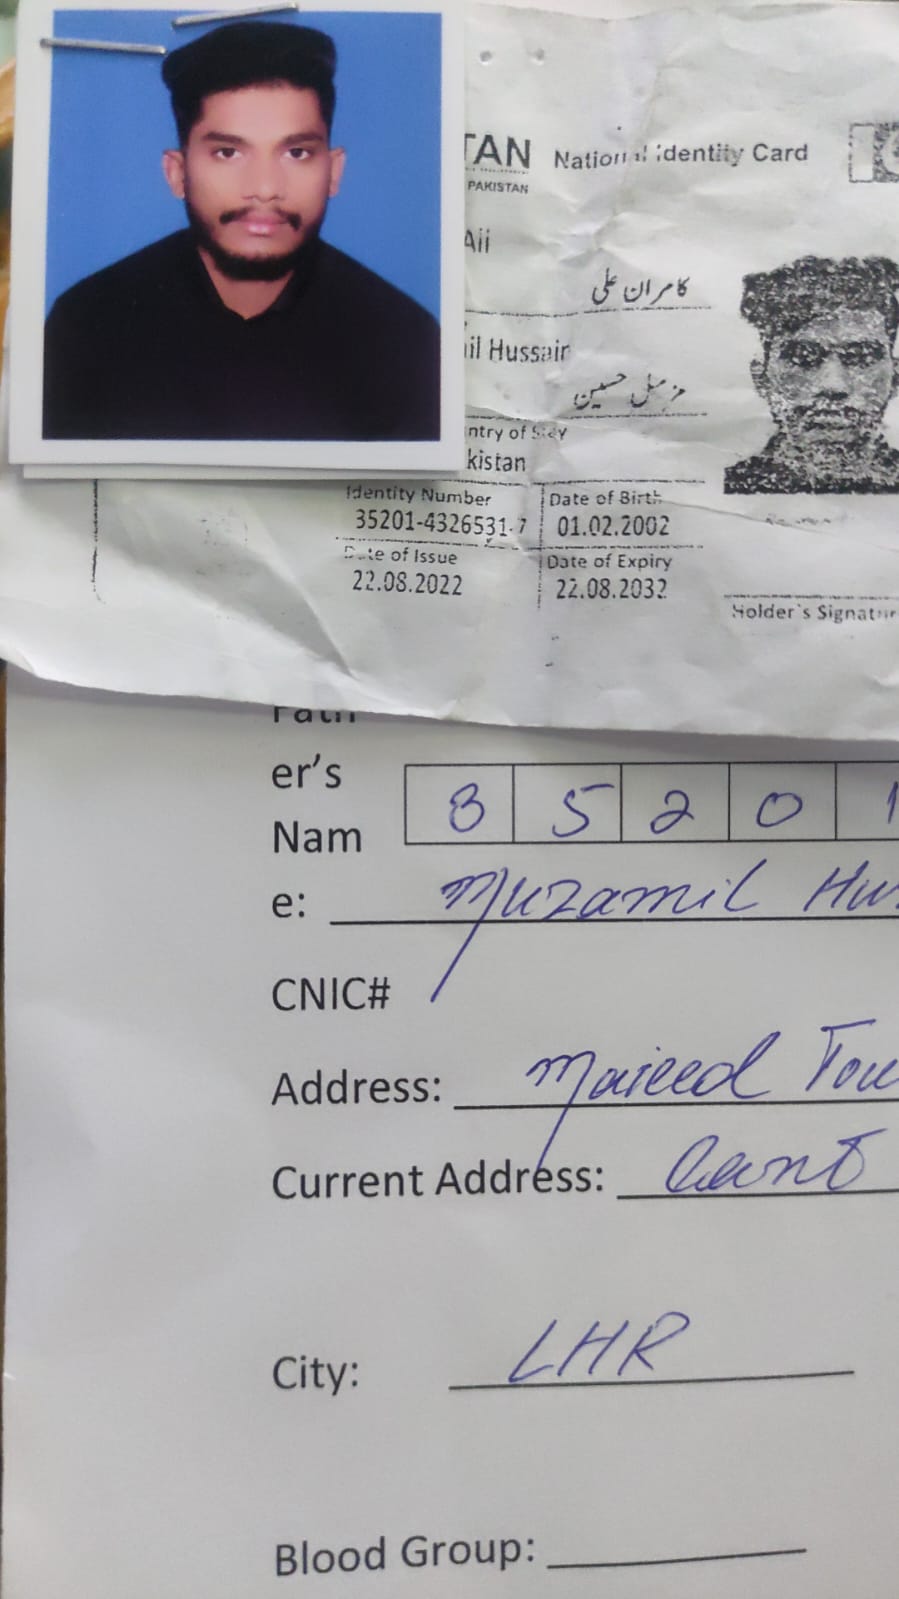 TAN National Identity Card
PAKISTAN
Ali
کامران علی
il Hussain
مزمل حسین
ntry of Stay
kistan
Identity Number
Date of Birth
35201-4326531-7
01.02.2002
Date of Issue
Date of Expiry
22.08.2022
22.08.2032
Holder's Signatur
Fath
er's
3 5 2 0 1
Nam
e: Muzamil Hus
CNIC#
Address: Majeed Tow
Current Address: Cant
City: LHR
Blood Group: